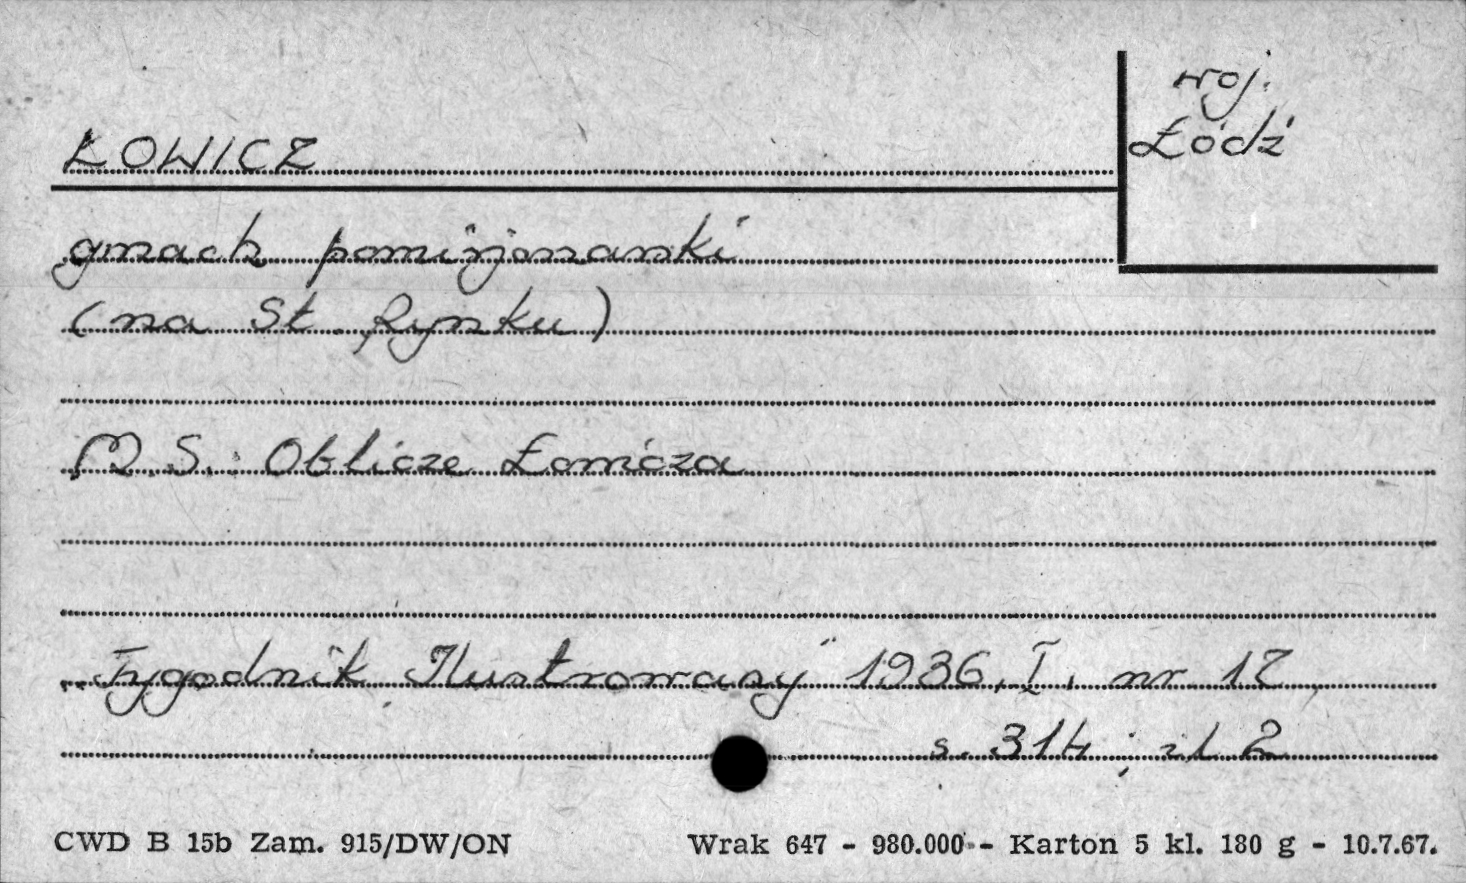 woj.
Łódź
ŁOWICZ
gmach pomisjonarski
(na St. Rynku)
M.S. Oblicze Łowicza
„Tygodnik Ilustrowany" 1936, I, nr 17,
s. 314; il. 2
CWD B 15b Zam. 915/DW/ON
Wrak 647 - 980.000 - Karton 5 kl. 180 g - 10.7.67.